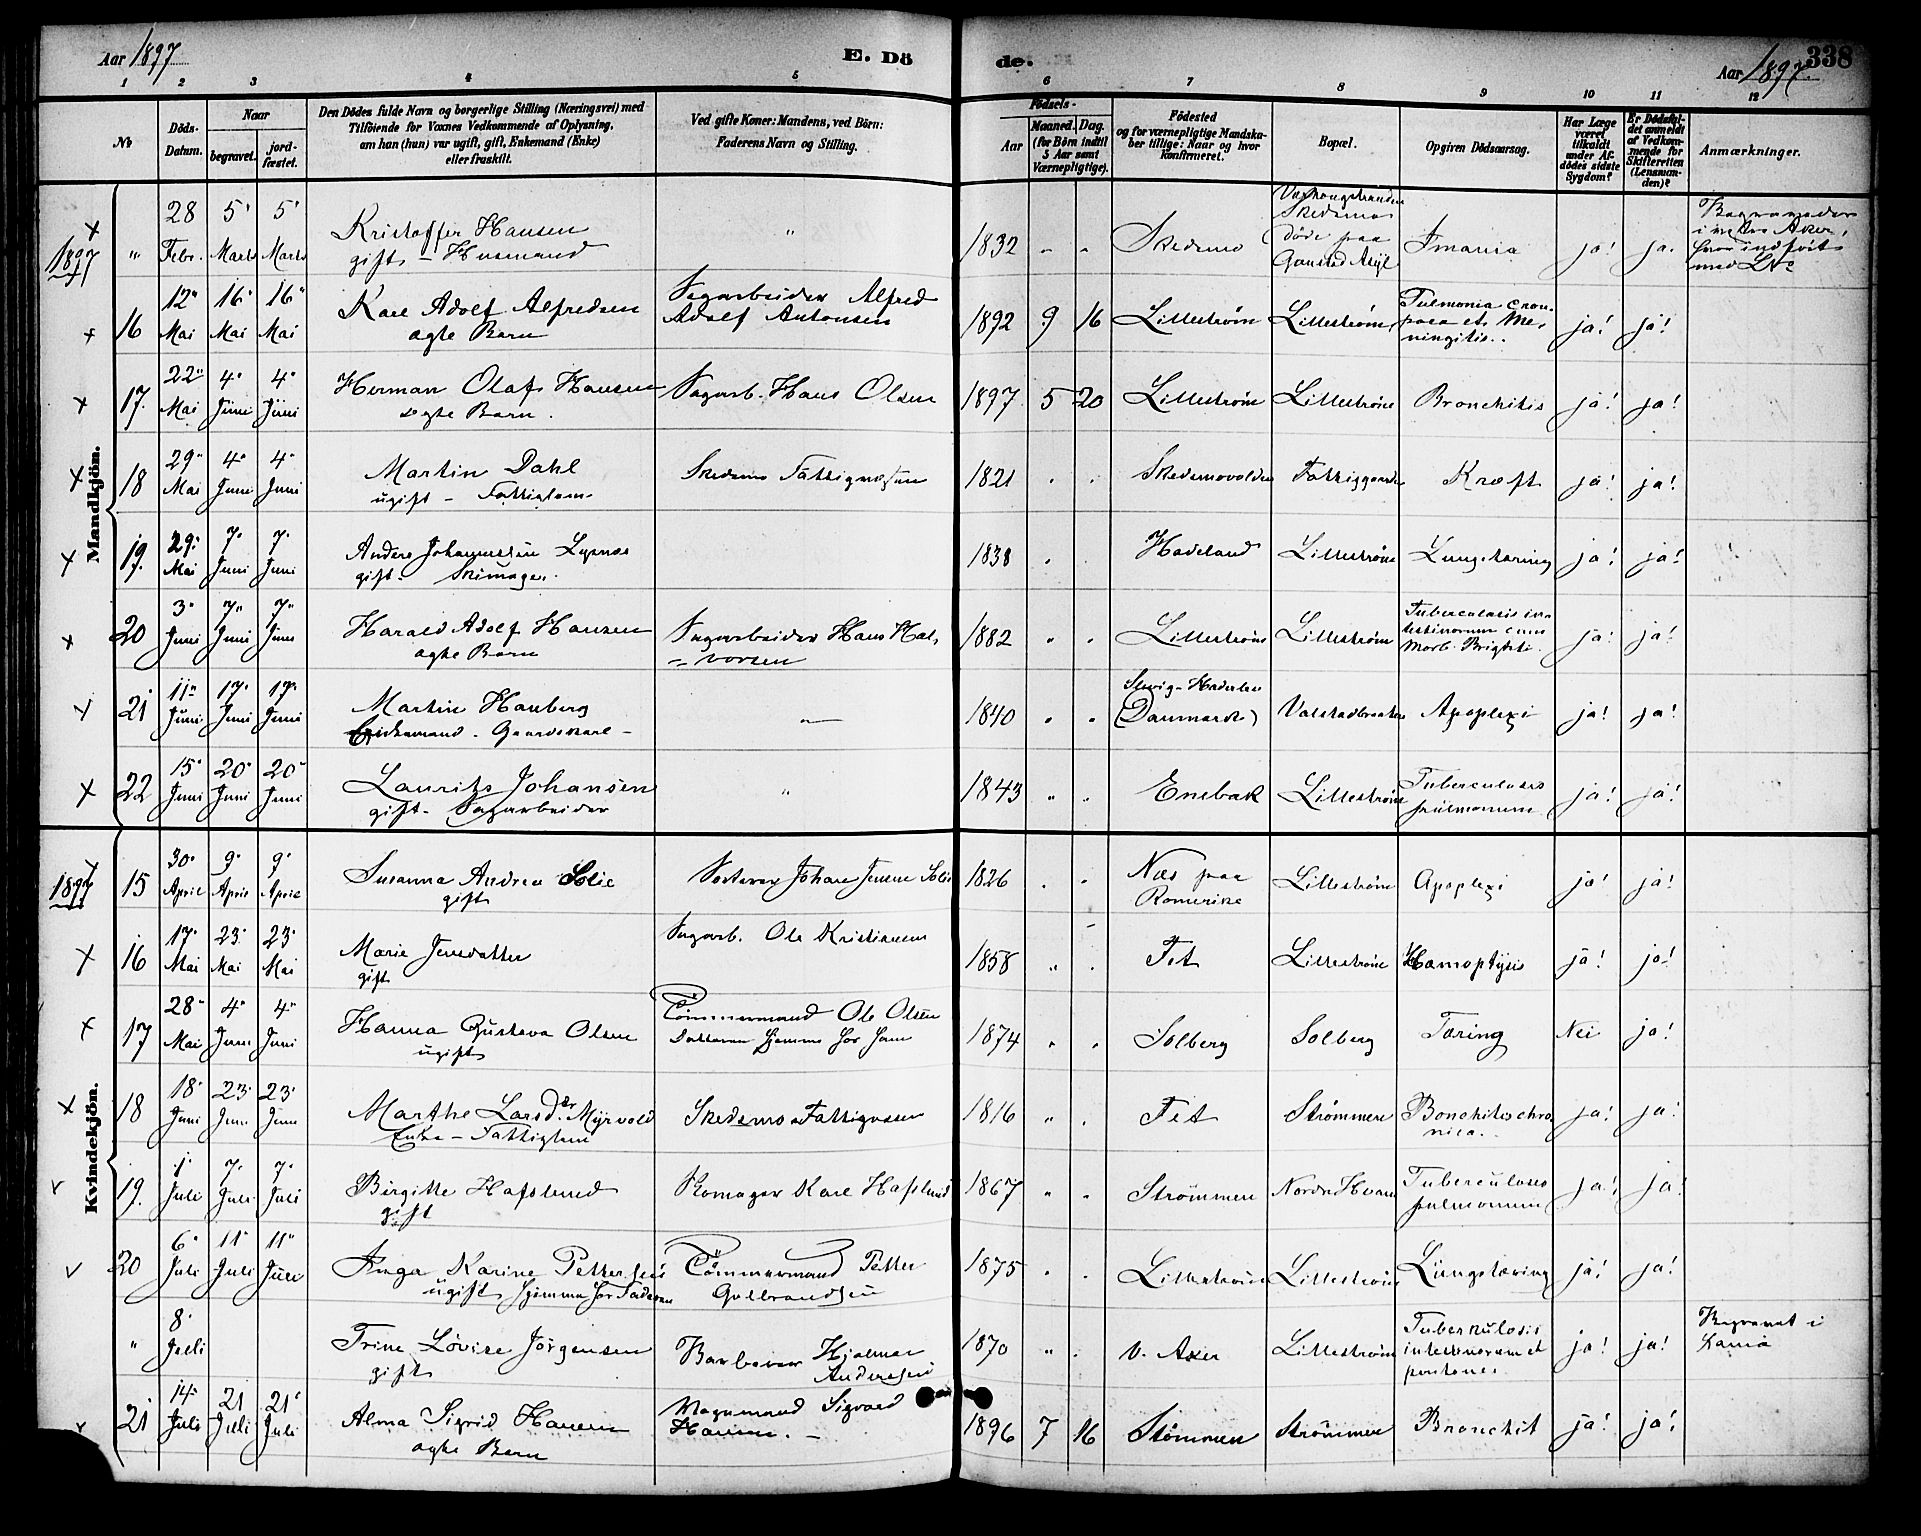 Aar 1897
E. Dö
de.
Aar 1897.
338
1 2 3 4 5 6 7 8 9 10 11 12
No
Döds-
Datum.
Naar
begravet.
jord-
fæstet.
Den Dödes fulde Navn og borgerlige Stilling (Næringsvei) med
Tilföiende for Voxnes Vedkommende af Oplysning,
om han (hun) var ugift, gift, Enkemand (Enke)
eller fraskilt.
Ved gifte Koner: Mandens, ved Börn:
Faderens Navn og Stilling.
Födsels-
Aar
Maaned. Dag.
(for Börn indtil
5 Aar samt
Værnepligtige).
Födested
og for værnepligtige Mandska-
ber tillige: Naar og hvor
konfirmeret.
Bopæl.
Opgiven Dödsaarsag.
Har Læge
været
tilkaldt
under Af-
dödes sidste
Sygdom?
Er Dödsfal-
det anmeldt
af Vedkom-
mende for
Skifteretten
(Lensman-
den)?
Anmærkninger.
Mandkjön.
1897
" 28 Febr. 5' Marts 5' Marts Kristoffer Hansen
gift - Husmand " 1832 " " Skedsmo
Skedsmo
döde paa
Gaustad Asyl
ja! ja.
med LNo
16 12" Mai 16' Mai 16" Mai Karl Adolf Alfredsen
ægte Barn
Sagarbeider Alfred
Adolf Antonsen
1892 9 16 Lilleström Lilleström
et Me-
ningitis.
ja! ja!
17. 22" Mai 4' Juni 4' Juni Herman Olaf Hansen
ægte Barn.
Sagarb. Hans Olsen
1897 5 20 Lilleström Lilleström Bronchitis ja! ja!
18 29" Mai 4' Juni 4' Juni Martin Dahl
ugift - Fattiglem
Skedsmo Fattigvæsen
1821 " " Skedsmovolden Fattiggaarden Kræft ja! ja!
19. 29' Mai 7' Juni 7' Juni Anders Johannessen
gift.
1838 " Hadeland Lilleström Lungetæring ja! ja!
20 3' Juni 7" Juni 7" Juni Harald Adolf Hansen
ægte Barn
Sagarbeider Hans Hal-
= vorsen
1882 " " Lilleström Lilleström
Tuberculosis in-
testinorum cum
Morb. Brightii.
ja! ja!
21 11" Juni 17' Juni 17' Juni Martin Hauberg
Enkemand - Gaardskarl -
" 1840 " "
Slesvig - Haderslev
(Danmark)
Apoplexi ja! ja!
22 15' Juni 20' Juni 20' Juni Lauritz Johansen
gift - Sagarbeider
" 1843 " " Enebak Lilleström
Tuberculosis
pulmonum
ja! ja!
Kvindekjön.
1897
15 30' April 9' April 9' April Susanna Andrea Solie
gift
Johan Jensen Solie
1826 " "
Næs paa
Romerike
Lilleström Apoplexi ja! ja!
16 17' Mai 23' Mai 23' Mai Marie Jensdatter
gift
Sagarb. Ole Kristiansen
1858 " " Fet Lilleström Hæmoptysis ja! ja!
17 28' Mai 4' Juni 4" Juni Hanna Gustava Olsen
ugift
Tömmermand Ole Olsen
Datteren hjemme hos ham
1874 " " Solberg Solberg Tæring Nei ja!
18 18' Juni 23' Juni 23' Juni Marthe Larsdtr. Myrvold
Enke - Fattiglem
Skedsmo Fattigvæsen
1816 " " Fet Strömmen
Bonchitis chro
nica.
ja! ja!
19. 1' Juli 7' Juli 7' Juli Birgitte Hafslund
gift
Karl Hafslund
1867 " " Strömmen Nordre Hvam
Tuberculosis
pulmonum
ja! ja!
20 6' Juli 11' Juli 11" Juli Inga Karine Pettersen
ugift hjemme hos Faderen
Tömmermand Petter
Gulbrandsen
1875 " " Lilleström Lilleström Lungetæring ja! ja!
" 8' Juli Trine Lovise Jörgensen
gift
Barberer Hjalmar
Andersen
1870 " " V. Aker Lilleström
Tuberkulosis
intestinorum et
peritonei
ja! ja!
Begravet i
21 14' Juli 21 Juli 21' Juli Alma Sigrid Hansen
ægte Barn
Vognmand Sigvard
Hansen. -
1896 7 16 Stömmen Strömmen Bronchit ja! ja!